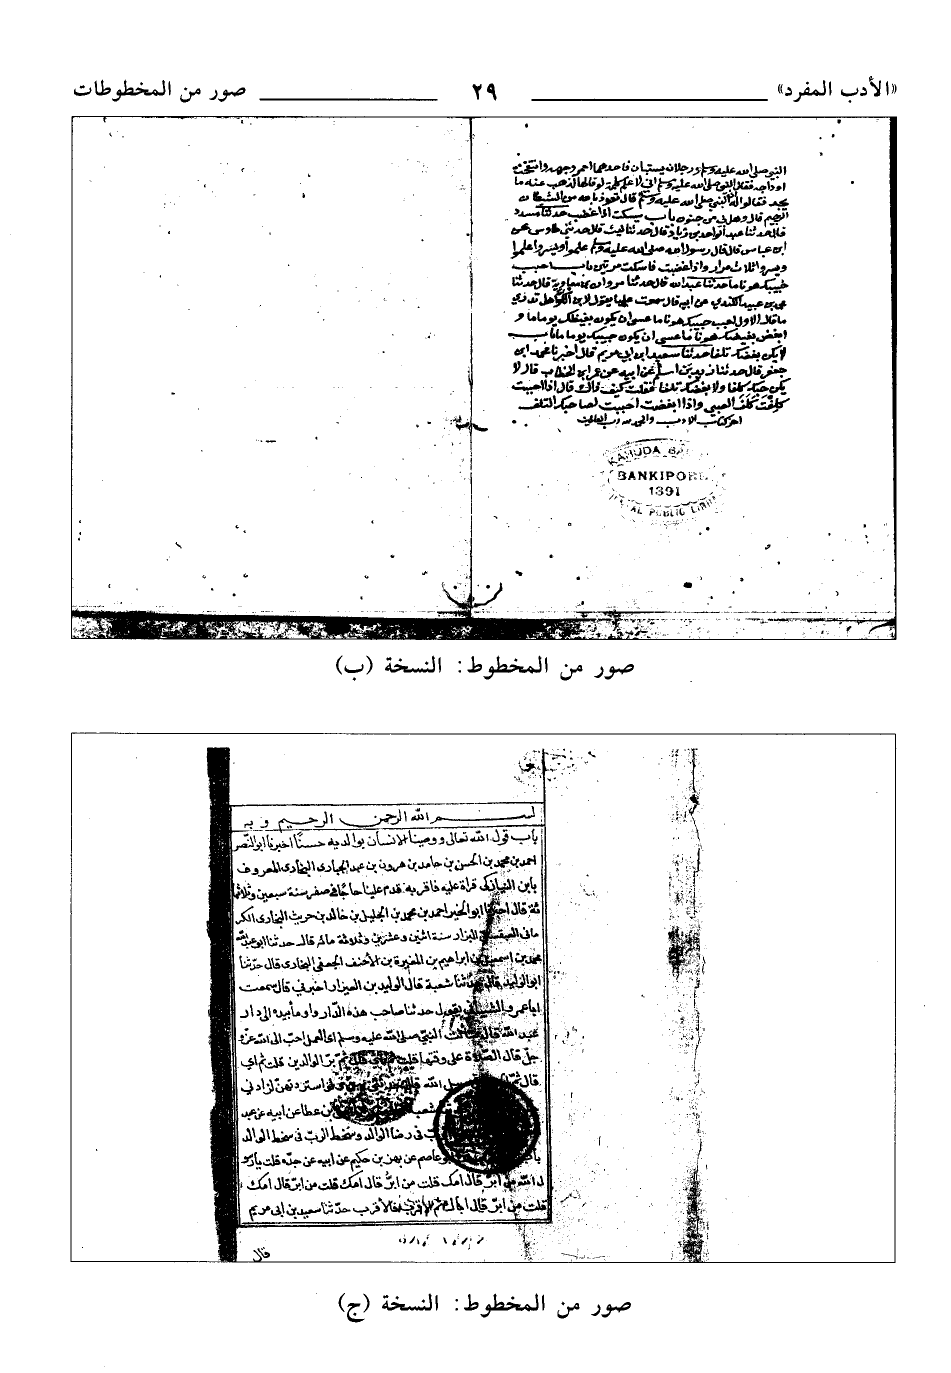 «الأدب المفرد» ٢٩ صور من المخطوطات
النبي صلى الله عليه وسلم ورجلان يستبان فاحدهما احمر وجهه وانتفخت
اوداجه فقال النبي صلى الله عليه وسلم اني لاعلم كلمة لو قالها لذهب عنه ما
يجد فقالوا له ان النبي صلى الله عليه وسلم قال تعوذ بالله من الشيطان
الرجيم قال وهل بي من جنون باب يسكت اذا غضب حدثنا مسدد
قال حدثنا عبد الواحد بن زياد قال حدثنا ليث قال حدثني طاوس عن
ابن عباس قال قال رسول الله صلى الله عليه وسلم علموا ويسروا علموا
ويسروا ثلاث مرار واذا غضبت فاسكت مرتين باب احبب
حبيبك هونا ما حدثنا عبد الله قال حدثنا مروان بن معاوية قال حدثنا
محمد بن عبيد الكندي عن ابيه قال سمعت عليا يقول لابن الكوا هل تدري
ما قال الاول احبب حبيبك هونا ما عسى ان يكون بغيضك يوما ما و
ابغض بغيضك هونا ما عسى ان يكون حبيبك يوما ما باب
لا يكن بغضك تلفا حدثنا سعيد ابن ابي مريم قال اخبرنا محمد ابن
جعفر قال حدثنا زيد بن اسلم عن ابيه عن عمر ابن الخطاب قال لا
يكن حبك كلفا ولا بغضك تلفا فقلت كيف ذاك قال اذا احببت
كلفت كلف الصبي واذا ابغضت احببت لصاحبك التلف
اخر كتاب الادب والحمد لله رب العالمين
BANKIPORE
1891
PUBLIC
صور من المخطوط: النسخة (ب)
بسم الله الرحمن الرحيم وبه
باب قول الله تعالى ووصينا الانسان بوالديه حسنًا اخبرنا ابو النصر
احمد بن محمد بن الحسن بن حامد بن هرون بن عبد الجبار البخارى المعروف
بابن النيازكى قراة عليه فاقر به قدم علينا حاجا في صفر سنة سبعين وثلاثما
ئة قال اخبرنا ابو الخير احمد بن محمد بن الجليل بن خالد بن حريث البخارى الكر
مانى العبقسى البزار سنة اثنين وعشرين وثلاثة مائه قال حدثنا ابو عبد الله
محمد بن اسمعيل بن ابراهيم بن المغيرة بن الأحنف الجعفى البخارى قال حدّثنا
ابو الوليد قال حدثنا شعبة قال الوليد بن العيزار اخبرني قال سمعت
ابا عمرو الشيبانى يقول حدثنا صاحب هذه الدّار واومأ بيده الى دار
عبد الله قال سألت النبيّ صلى الله عليه وسلم اى العمل احبّ الى الله عزّ و
جلّ قال الصلاة على وقتها قلت ثم اىّ قال ثم برّ الوالدين قلت ثم اي
قال ثم الجهاد في سبيل الله قال حدثني بهن ولو استزدته لزادني
شعبة بن عطا عن ابيه عن عبد
الربّ في رضا الوالد وسخط الربّ في سخط الوالد
ابو عاصم عن بهز بن حكيم عن ابيه عن جدّه قلت يا رسو
ل الله من ابرّ قال امك قلت من ابرُّ قال امك قلت من ابرّ قال امك
قلت من ابرّ قال اباك ثم الأقرب فالأقرب حدّثنا سعيد بن ابى مريم
قال
صور من المخطوط: النسخة (ج)